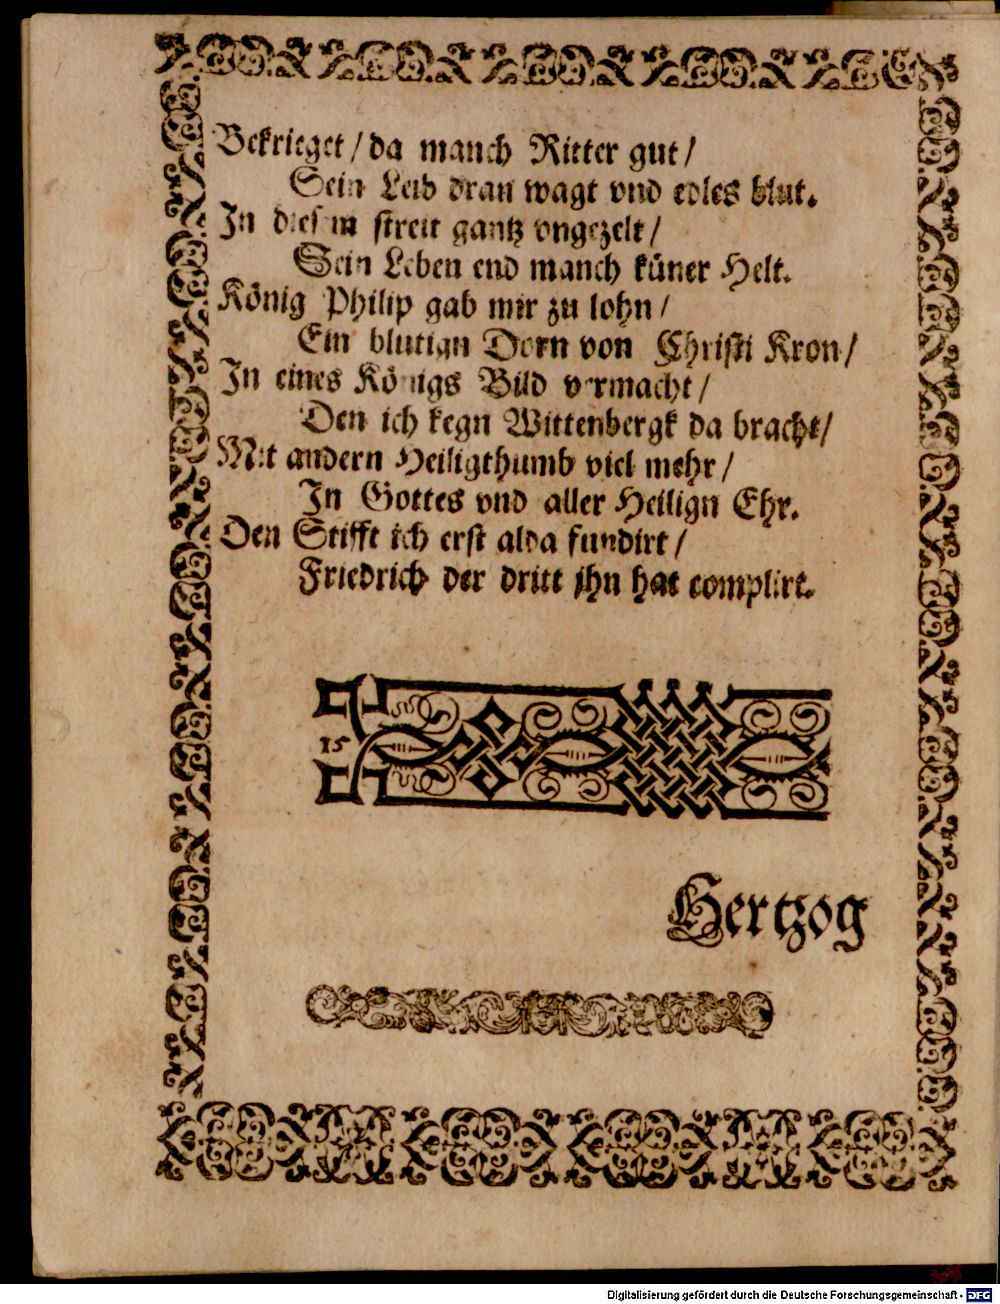 Bekrieget / da manch Ritter gut /
Sein Leib dran wagt vnd edles blut.
In diesem streit gantz vngezelt /
Sein Leben end manch küner Helt.
König Philip gab mir zu lohn /
Ein blutign Dorn von Christi Kron /
In eines Königs Bild vermacht /
Den ich kegn Wittenbergk da bracht /
Mit andern Heiligthumb viel mehr /
In Gottes vnd aller Heilign Ehr.
Den Stifft ich erst alda fundirt /
Friedrich der dritt jhn hat complirt.
15
Hertzog
Digitalisierung gefördert durch die Deutsche Forschungsgemeinschaft - DFG